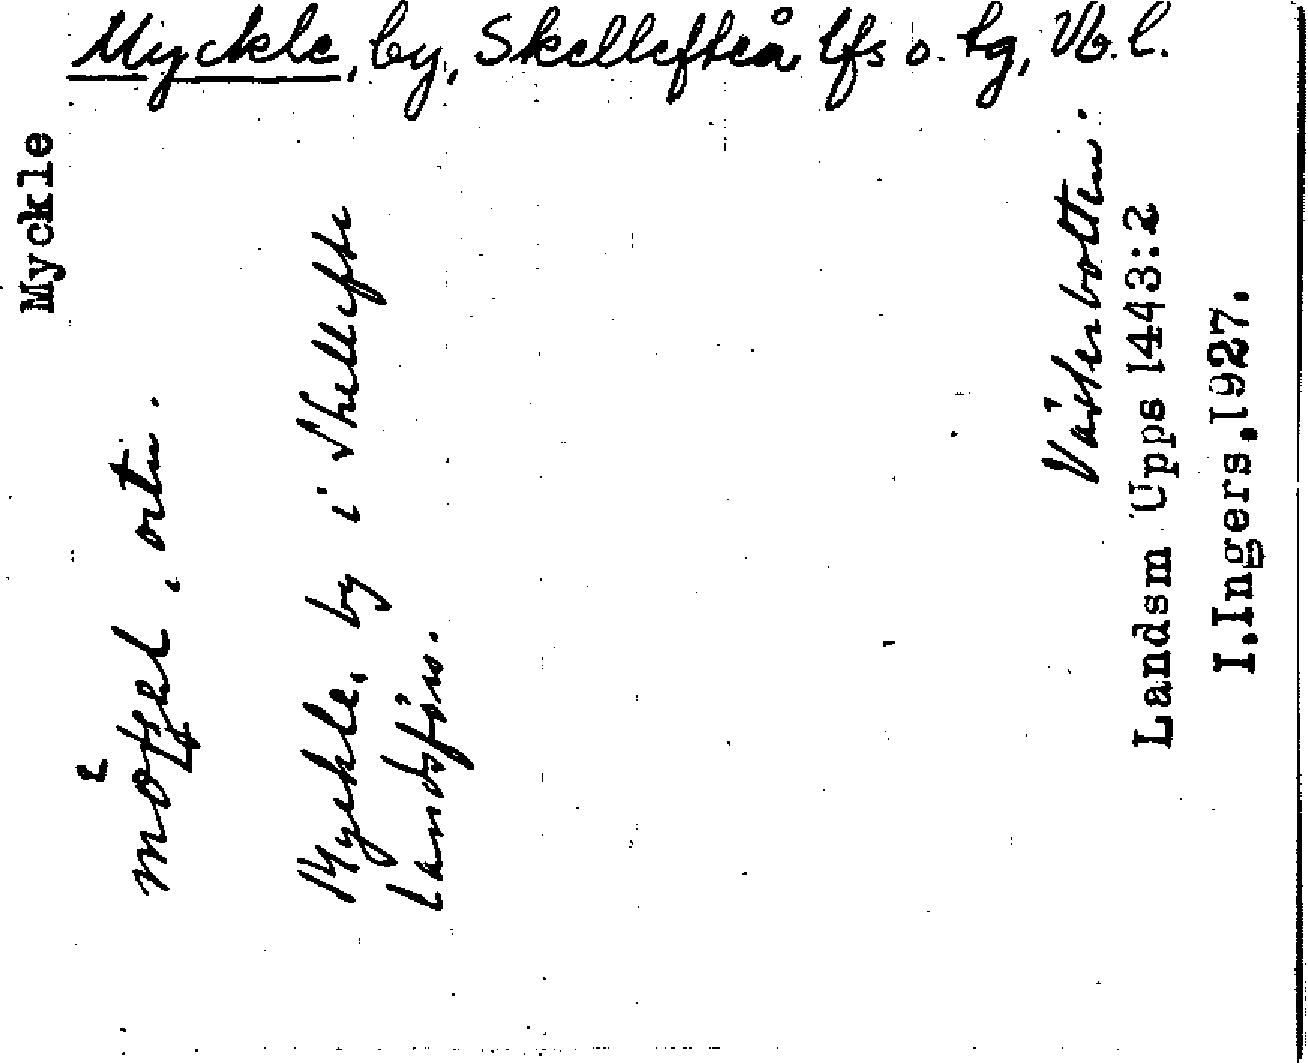 Myckle, by, Skellefteå lfs o. tg, Vb. l.
Myckle
, ortn.
Myckle, by i Skellefte
landsförs.
Västerbotten.
Landsm Upps 1443:2
I.Ingers.1927.